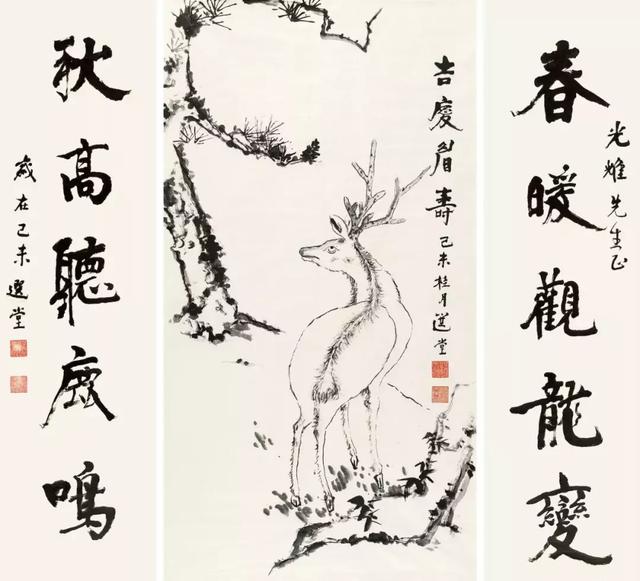 春暖觀龍變
光雄先生正
吉慶眉壽
己未桂月選堂
秋高聽鹿鳴
歲在己未選堂